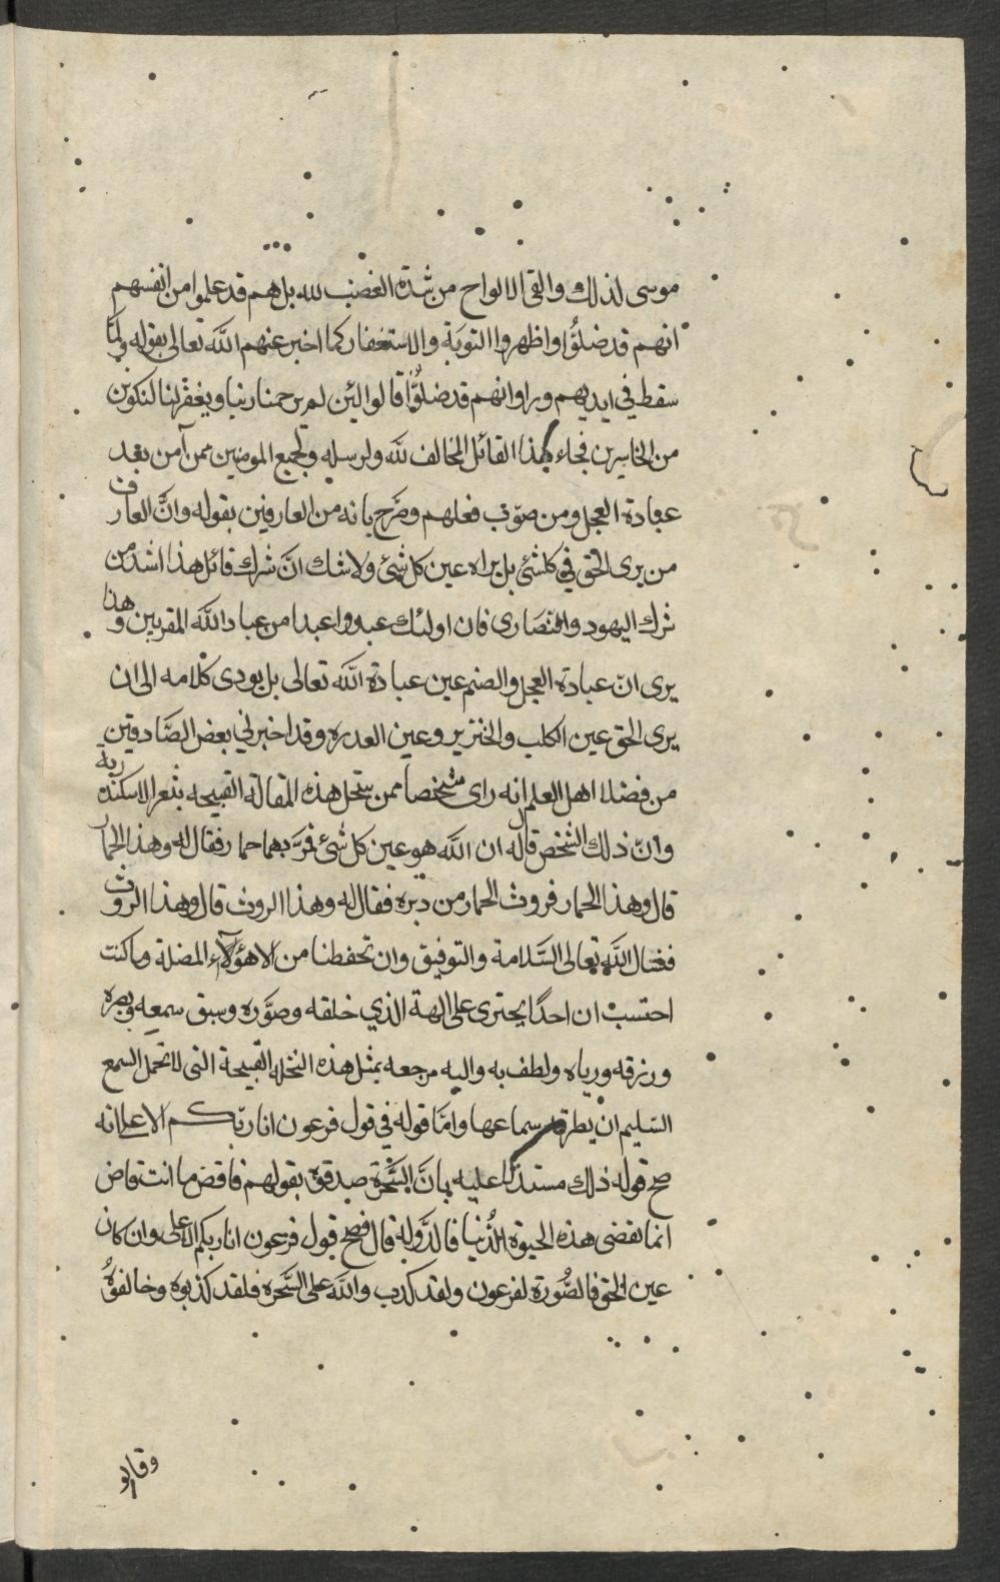 موسى لذلك والقى الالواح من شدة الغضب لله بل هم قد علموا من انفسهم
انهم قد ضلُّوا واظهروا التوبَة والاستغفار كما اخبر عنهم اللّه تعالى بقوله ولمّا
سقط فى ايديهم وراوا انهم قد ضلّوُا قالوا لئن لم يرحمنا ربنا ويغفر لنا لنكونن
من الخاسرين فجاء هذا القائل المخالف للّه ولرسله ولجميع المومنين ممن آمن بعد
عبادة العجل ومن صوّب فعلهم وصَّرح بانه من العارفين بقوله وانَّ العارف
من يرى الحق فى كلشئ بل يراه عين كل شئ ولاشك انّ شرك قائل هذا اشد من
شرك اليهود والنصَارى فان اولئك عبدوا عبدا من عباد اللّه المقربين وهذا
يرى انّ عبادة العجل والصنم عين عبادة اللّه تعالى بل يودى كلامه الى ان
يرى الحق عين الكلب والخنزير وعين العدره وقد اخبرني بعض الصَّادقين
من فضلا اهل العلم انه راى شخصا ممن ينتحل هذه المقالة القبيحه بثغر الاسكندرية
وانّ ذلك الشخص قال له ان اللّه هو عين كل شئ فمرّ بهما حمار فقال له وهذا الحمار
قال وهذا الحمار فروث الحمار من دبره فقال له وهذا الروث قال وهذا الروث
فنسال اللّه تعالى السَّلامة والتوفيق وان تحفظنا من الاهؤلآء المضلة وما كنت
احتسبْ ان احدًا يجترى على الهة الذي خلقه وصوَّره وسبق سمعه وبصره
ورزقه ورباه ولطف به واليه مرجعه بمثل هذه النحله القبيحة التى لا تحمل السمع
السّليم ان يطرقه سماعها وامّا قوله فى قول فرعون انا ربّكم الاعلى انه
صح قوله ذلك مستدلّا عليه بانَّ السَّحَرة صدقوه بقولهم فاقض ما انت قاض
انما تقضى هذه الحيوة الدُّنيا فالدَّولة قال فصح قول فرعون انا ربكم الاعلى وان كان
عين الحق فالصُّورة لفرعون ولقد كذب واللّه على السَّحره فلقد كذبوه وخالفوهُ
وقالو